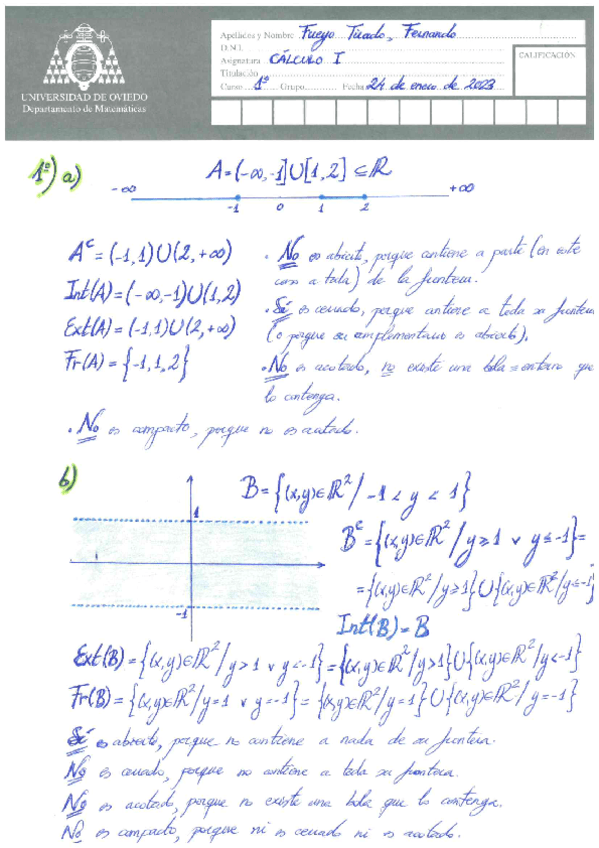 UNIVERSIDAD DE OVIEDO
Departamento de Matemáticas
Apellidos y Nombre Fueyo Tirado, Fernando
D.N.I.
Asignatura CÁLCULO I
Titulación
Curso 1º Grupo Fecha 24 de enero de 2023
CALIFICACIÓN
1º) a) A=(-∞,-1]∪[1,2] ⊆ ℝ
-∞ +∞
-1 0 1 2
Aᶜ=(-1,1)∪(2,+∞)
Int(A)=(-∞,-1)∪(1,2)
Ext(A)=(-1,1)∪(2,+∞)
Fr(A)={-1,1,2}
· No es abierto, porque contiene a parte (en este
caso a toda) de la frontera.
· Sí es cerrado, porque contiene a toda su frontera
(o porque su complementario es abierto).
· No es acotado, no existe una bola = entorno que
lo contenga.
· No es compacto, porque no es acotado.
b) B={(x,y)∈ℝ²/ -1 < y < 1}
1
-1
Bᶜ={(x,y)∈ℝ²/ y≥1 ∨ y≤-1}=
={(x,y)∈ℝ²/y≥1}∪{(x,y)∈ℝ²/y≤-1}
Int(B)=B
Ext(B)={(x,y)∈ℝ²/y>1 ∨ y<-1}={(x,y)∈ℝ²/y>1}∪{(x,y)∈ℝ²/y<-1}
Fr(B)={(x,y)∈ℝ²/y=1 ∨ y=-1}={(x,y)∈ℝ²/y=1}∪{(x,y)∈ℝ²/y=-1}
Sí es abierto, porque no contiene a nada de su frontera.
No es cerrado, porque no contiene a toda su frontera.
No es acotado, porque no existe una bola que lo contenga.
No es compacto, porque ni es cerrado ni es acotado.